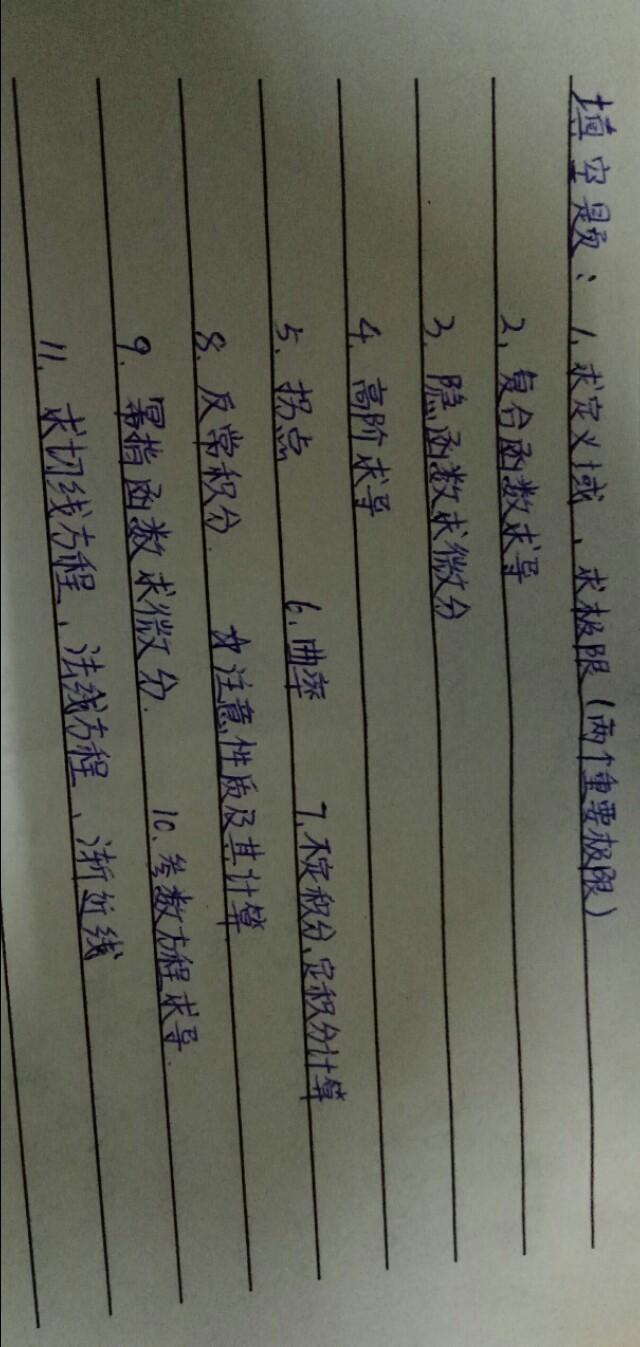 填空题：1. 求定义域、求极限（两个重要极限）
2、复合函数求导
3. 隐函数求微分
4. 高阶求导
5. 拐点 6. 曲率 7. 不定积分、定积分计算
8. 反常积分. 注意性质及其计算
9. 幂指函数求微分. 10. 参数方程求导.
11. 求切线方程、法线方程、渐近线